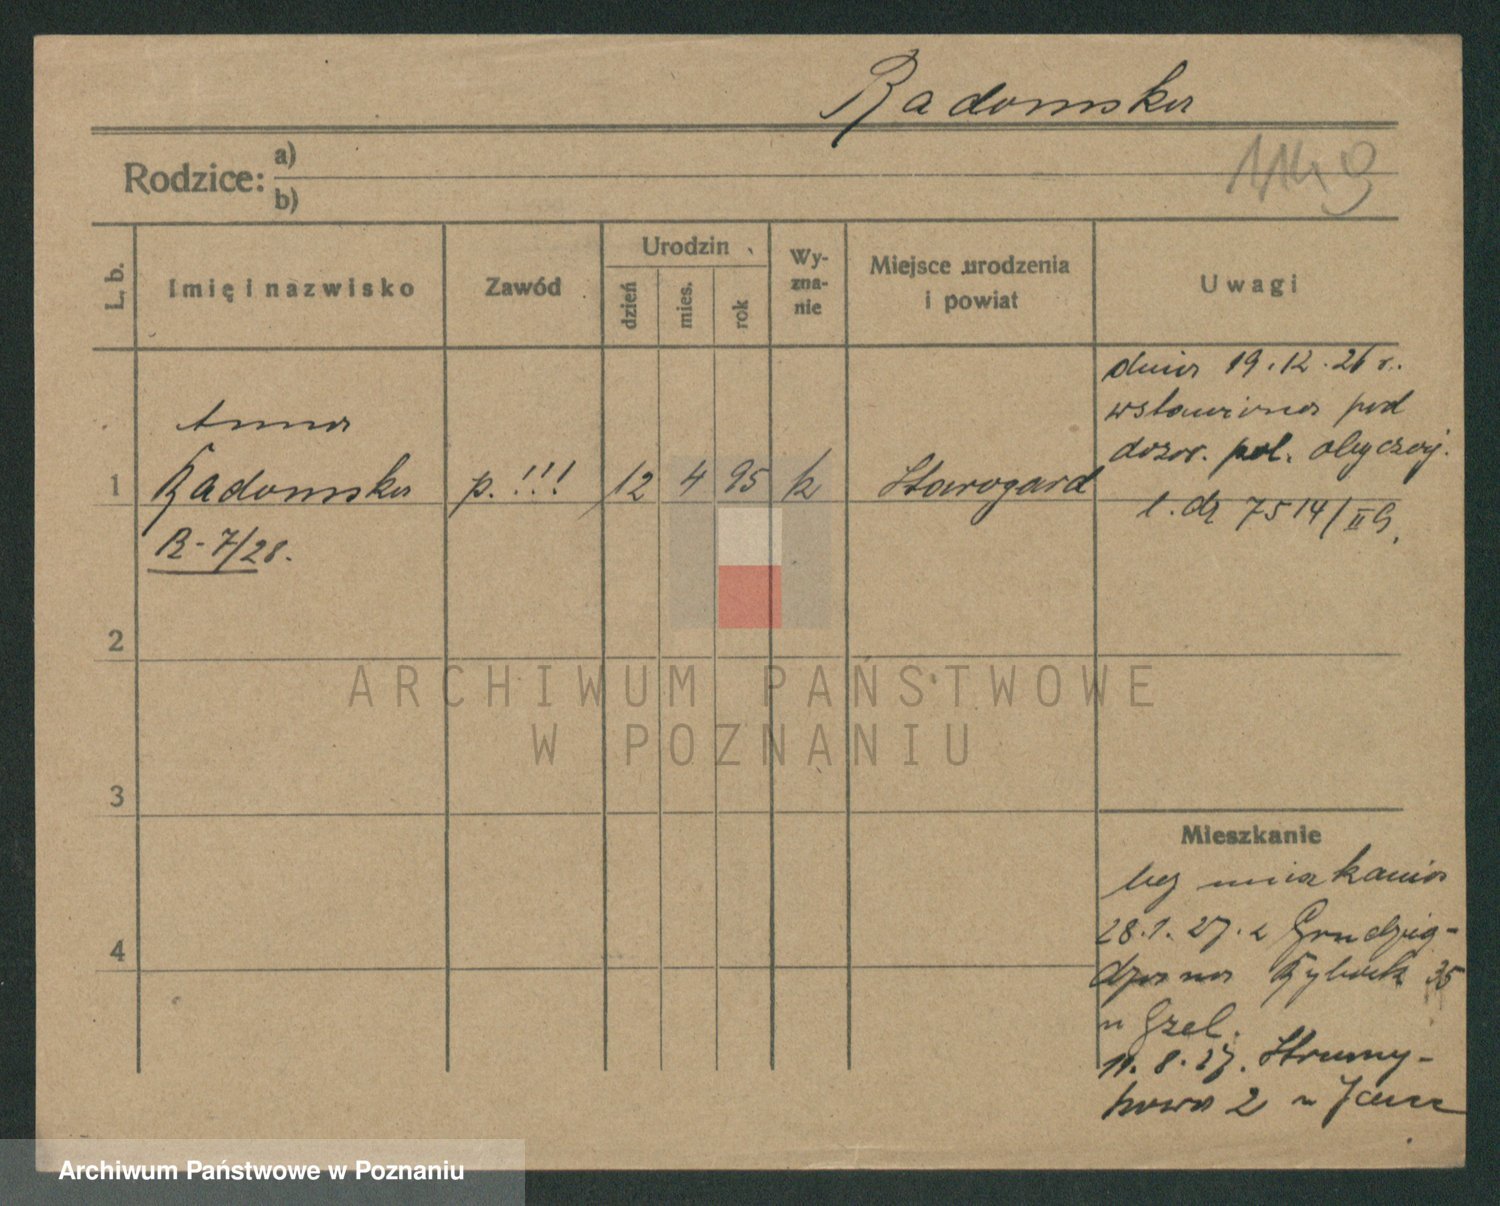 Radomska
Rodzice: a)
b)
L. b.
Imię i nazwisko
Zawód
Urodzin
dzień
mies.
rok
Wy-
zna-
nie
Miejsce urodzenia
i powiat
Uwagi
dnia 19.12.26 r.
wstawiona pod
dozór. pol. obyczaj.
l. dz 7514/II G.
Anna
1 Radomska p. !!! 12 4 95 k Starogard
R-7/28.
2
3
4
Mieszkanie
bez mieszkania
28.1.27. z Grudzią-
dza na Rybaki 35
u Grel.
11.8.27. Strumy-
kowa 2 u
ARCHIWUM PAŃSTWOWE
W POZNANIU
Archiwum Państwowe w Poznaniu